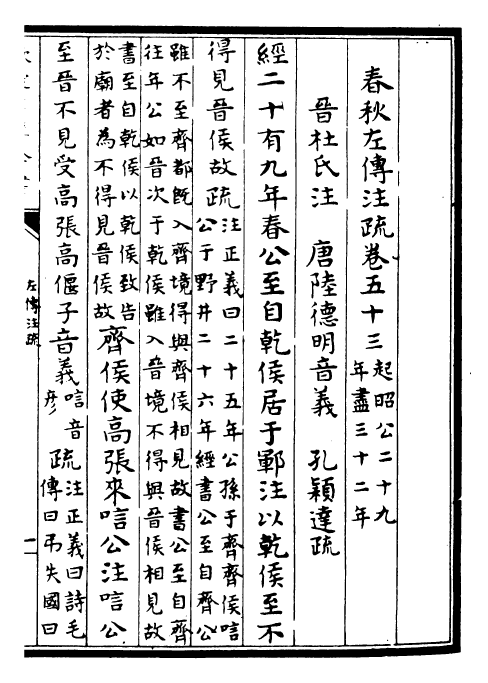 春秋左傳注疏卷五十三
起昭公二十九
年盡三十二年
晉杜氏注 唐陸德明音義 孔穎達疏
經二十有九年春公至自乾侯居于鄆注以乾侯至不
得見晉侯故疏
注正義曰二十五年公孫于齊齊侯唁
公于野井二十六年經書公至自齊公
雖不至齊都既入齊境得與齊侯相見故書公至自齊
往年公如晉次于乾侯雖入晉境不得與晉侯相見故
書至自乾侯以乾侯致告
於廟者為不得見晉侯故
齊侯使高張來唁公注唁公
至晉不見受高張高偃子音義
唁音
彥
疏
注正義曰詩毛
傳曰弔失國曰
左傳注疏
一